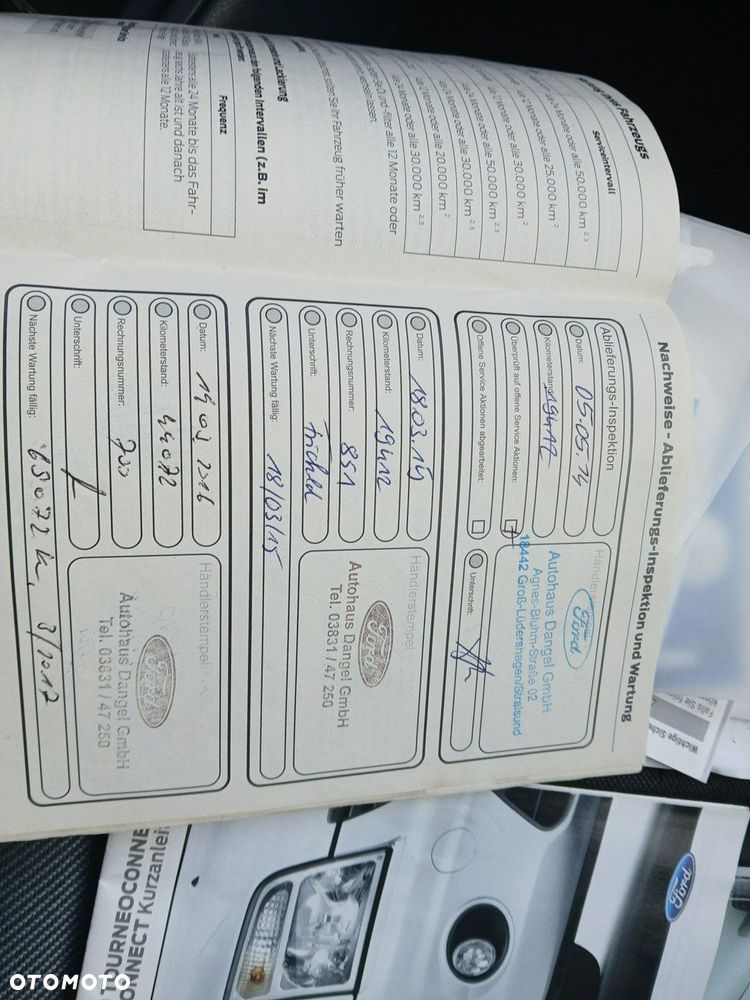 Nachweise - Ablieferungs-Inspektion und Wartung
Ablieferungs-Inspektion
Datum: 05.05.14
Kilometerstand: 19412
Überprüft auf offene Service Aktionen:
Offene Service Aktionen abgearbeitet:
Ford
Autohaus Dangel GmbH
Agnes-Bluhm-Straße 02
18442 Groß-Lüdershagen/Stralsund
Unterschrift:
Datum: 18.03.14
Kilometerstand: 19412
Rechnungsnummer: 851
Unterschrift:
Nächste Wartung fällig: 18/03/15
Händlerstempel
Ford
Autohaus Dangel GmbH
Tel. 03831 / 47 250
Datum: 2016
Kilometerstand: 44072
Rechnungsnummer:
Unterschrift:
Nächste Wartung fällig: 69072 3/2017
Händlerstempel
Ford
Autohaus Dangel GmbH
Tel. 03831 / 47 250
Fahrzeugs
Serviceintervall
24 Monate oder alle 50.000 km 2,3
Monate oder alle 25.000 km 2
12 Monate oder alle 30.000 km 2
24 Monate oder alle 50.000 km 2,3
Monate oder alle 30.000 km 2,3
alle 12 Monate oder alle 20.000 km 2
alle 24 Monate oder alle 30.000 km 2,3
und -filter alle 12 Monate oder
sollten Sie Ihr Fahrzeug früher warten
lassen.
Lackierung
den folgenden Intervallen (z.B. im
Frequenz
alle 24 Monate bis das Fahr-
Jahre alt ist und danach
alle 12 Monate.
Ford
TOURNEOCONNE
CONNECT Kurzanlei
OTOMOTO